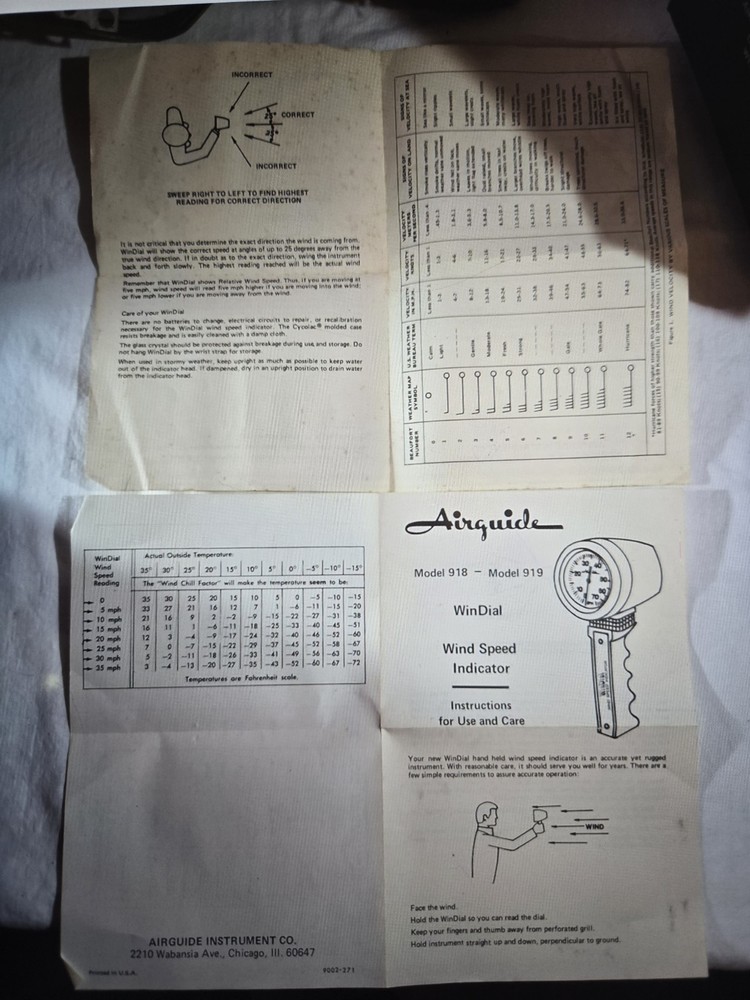 INCORRECT
CORRECT
25°
25°
INCORRECT
SWEEP RIGHT TO LEFT TO FIND HIGHEST
READING FOR CORRECT DIRECTION
It is not critical that you determine the exact direction the wind is coming from.
WinDial will show the correct speed at angles of up to 25 degrees away from the
true wind direction. If in doubt as to the exact direction, swing the instrument
back and forth slowly. The highest reading reached will be the actual wind
speed.
Remember that WinDial shows Relative Wind Speed. Thus, if you are moving at
five mph, wind speed will read five mph higher if you are moving into the wind;
or five mph lower if you are moving away from the wind.
Care of your WinDial
There are no batteries to change, electrical circuits to repair, or recalibration
necessary for the WinDial wind speed indicator. The Cycolac® molded case
resists breakage and is easily cleaned with a damp cloth.
The glass crystal should be protected against breakage during use and storage. Do
not hang WinDial by the wrist strap for storage.
When used in stormy weather, keep upright as much as possible to keep water
out of the indicator head. If dampened, dry in an upright position to drain water
from the indicator head.
BEAUFORT NUMBER
WEATHER MAP SYMBOL
U.S. WEATHER BUREAU TERM
VELOCITY IN M.P.H.
VELOCITY KNOTS
VELOCITY METERS PER SECOND
SIGNS OF VELOCITY ON LAND
SIGNS OF VELOCITY AT SEA
0 Calm Less than 1 Less than 1
1 Light 1-3 1-3
2 4-7 4-6
3 Gentle 8-12 7-10
4 Moderate 13-18 11-16
5 Fresh 19-24 17-21
6 Strong 25-31 22-27
7 32-38
8 39-46
9 Gale 47-54 41-47
10 55-63 48-55
11 Whole Gale 64-73
12 Hurricane 74-82
Figure 1. WIND VELOCITY BY VARIOUS SCALES OF MEASURE
WinDial
Wind
Speed
Reading
Actual Outside Temperature:
35° 30° 25° 20° 15° 10° 5° 0° -5° -10° -15°
The "Wind Chill Factor" will make the temperature seem to be:
0 35 30 25 20 15 10 5 0 -5 -10 -15
5 mph 33 27 21 16 12 7 1 -6 -11 -15 -20
10 mph 21 16 9 2 -2 -9 -15 -22 -27 -31 -38
15 mph 16 11 1 -6 -11 -18 -25 -33 -40 -45 -51
20 mph 12 3 -4 -9 -17 -24 -32 -40 -46 -52 -60
25 mph 7 0 -7 -15 -22 -29 -37 -45 -52 -58 -67
30 mph 5 -2 -11 -18 -26 -33 -41 -49 -56 -63 -70
35 mph 3 -4 -13 -20 -27 -35 -43 -52 -60 -67 -72
Temperatures are Fahrenheit scale.
AIRGUIDE INSTRUMENT CO.
2210 Wabansia Ave., Chicago, Ill. 60647
Printed in U.S.A.
9002-271
Airguide
Model 918 — Model 919
WinDial
Wind Speed
Indicator
Instructions
for Use and Care
Your new WinDial hand held wind speed indicator is an accurate yet rugged
instrument. With reasonable care, it should serve you well for years. There are a
few simple requirements to assure accurate operation:
WIND
Face the wind.
Hold the WinDial so you can read the dial.
Keep your fingers and thumb away from perforated grill.
Hold instrument straight up and down, perpendicular to ground.